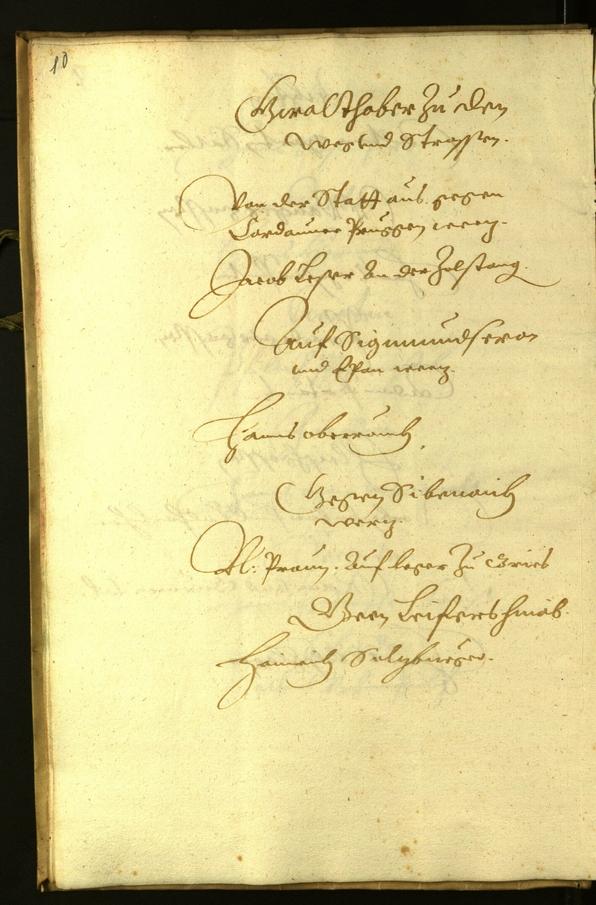 10
Gwalthaber Zu den
weg und Strassen.
Von der Statt aus gegen
Cardauner Pruggen werz.
Jacob Leser an der Zolstang
Auf Sigmundscron
und Epan werz.
Hanns oberrauch
Gegen Sibenaich
werz.
N: Praun. Auf leger Zu Gries
Geen Leifers hinab.
Hainrich